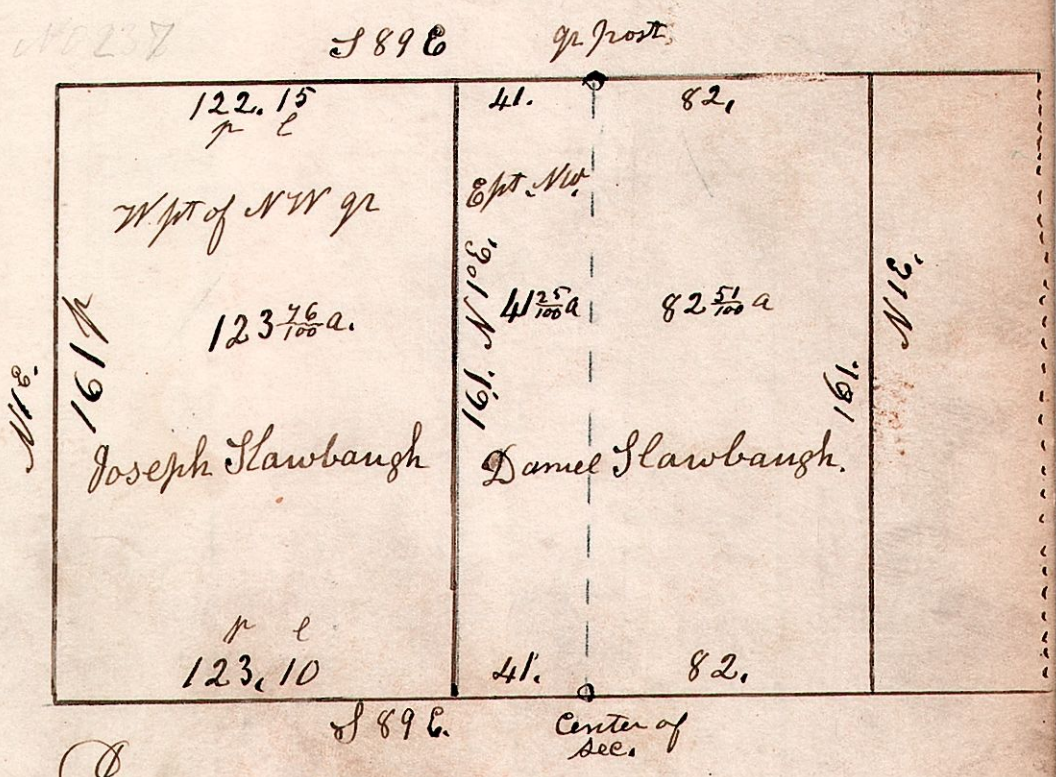 No 237
S 89 E
qr post
122. 15
p l
41.
82,
W. pt of N W qr
E pt NW.
123 76/100 a.
41 25/100 a
82 51/100 a
N 1 E.
161 p
N 1 E
161.
161.
N 1 E
Joseph Slawbaugh
Daniel Slawbaugh.
p l
123, 10
41.
82.
S 89 E.
Center of
Sec.